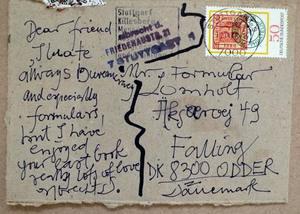 Dear friend
I hate
always bureaucracy
and especially
formulars,
but I have
enjoyed
your last book
very lot of love
Stuttgart
Killesberg
Albrecht/d.
FRIEDENAUSTR. 21
7 STUTTGART 1
50
DEUTSCHE BUNDESPOST
Mr. Formular
Lomholt
49
Falling
DK 8300 ODDER
Dänemark